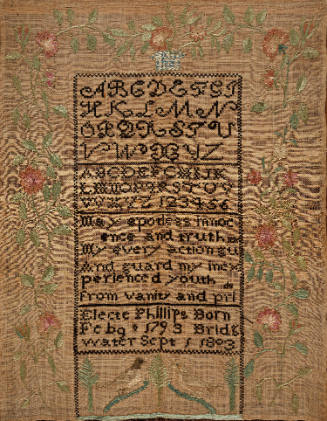 ABCDEFGI
HKLMN
OPQRSTU
VWXYZ
ABCDEFGHIJK
LMNOPQRSTUV
WXYZ 123456
May spotless innoc
ence and truth
my every action gu
And guard my inex
perienced youth
from vanity and pri
Electe Phillips Born
Feb 9 1793 Bridg
water Sept 1 1803